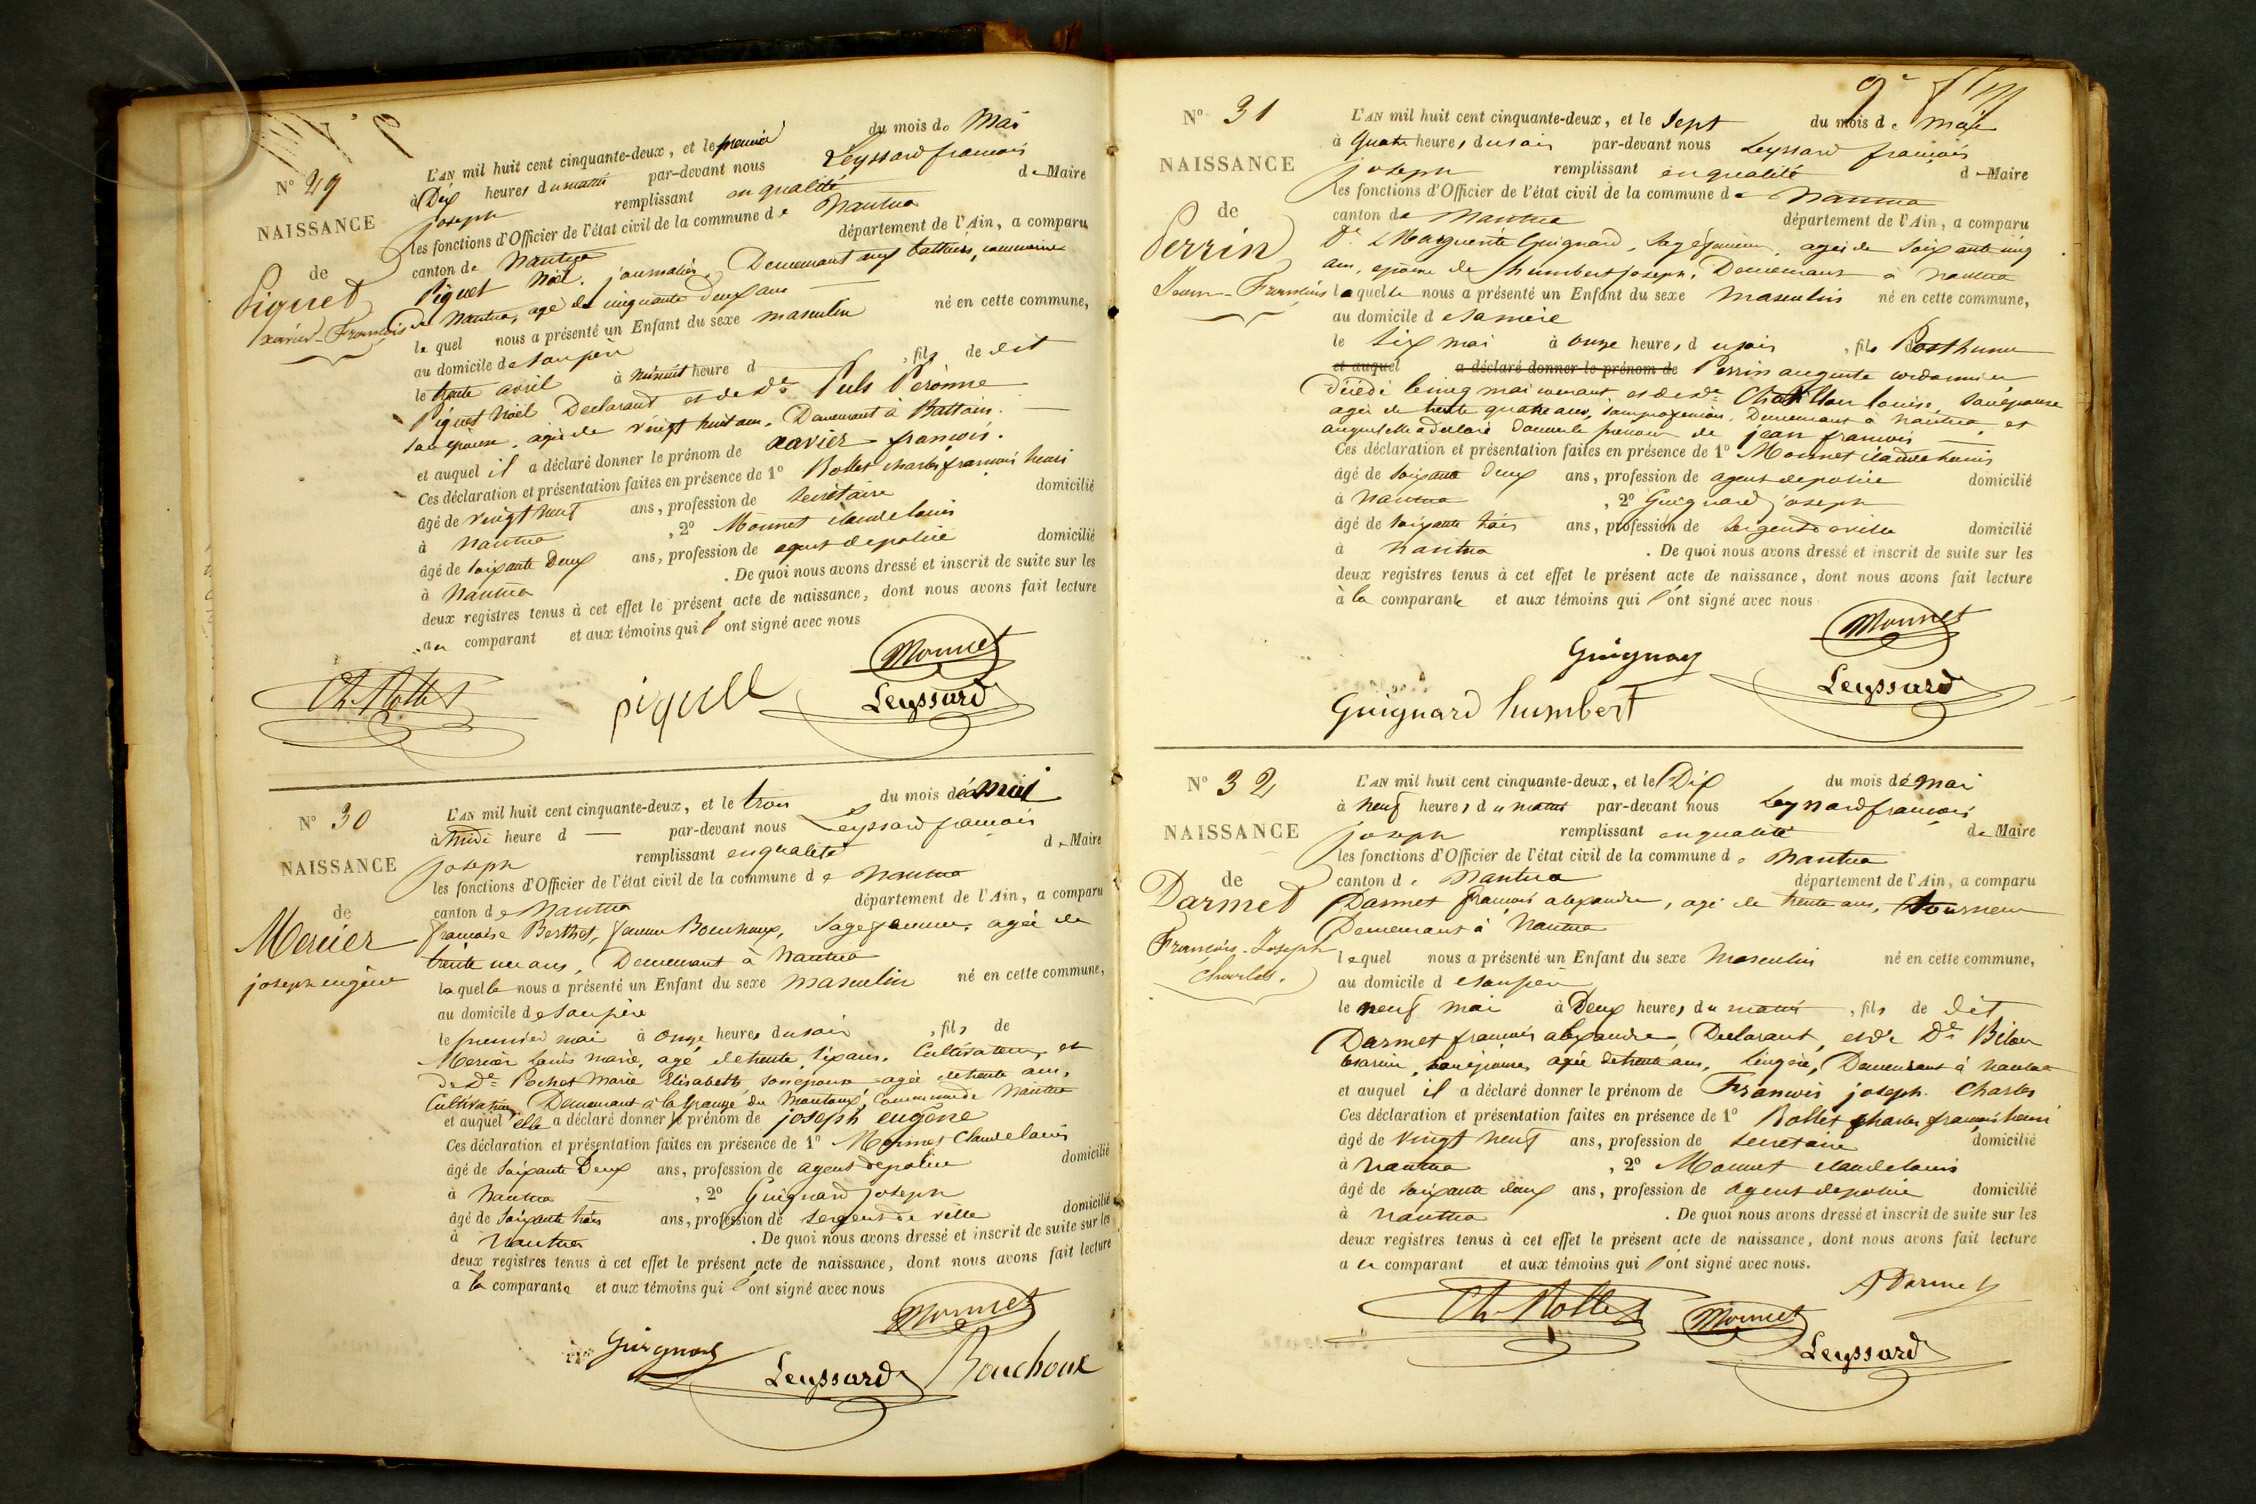 N° 29
NAISSANCE
de
Piguet
xavier-François
L'AN mil huit cent cinquante-deux, et le premier du mois de Mai
à Dix heures du matin par-devant nous Leyssard françois
joseph remplissant en qualité de Maire
les fonctions d'Officier de l'état civil de la commune de Nantua
canton de Nantua département de l'Ain, a comparu
Piguet Noël, journalier, Demeurant aux battoirs, commune
de Nantua, agé de cinquante deux ans
lequel nous a présenté un Enfant du sexe masculin né en cette commune,
au domicile de son père
le trente avril à minuit heure d , fils de dit
Piguet Noël Declarant et de De Puls Péronne
son épouse, agée de vingt huit ans, Demeurant à Battoirs.
et auquel il a déclaré donner le prénom de xavier françois.
Ces déclaration et présentation faites en présence de 1° Rollet charles françois henri
âgé de vingt neuf ans, profession de secrétaire domicilié
à Nantua , 2° Monnet claude louis
âgé de soixante Deux ans, profession de agent de police domicilié
à Nantua . De quoi nous avons dressé et inscrit de suite sur les
deux registres tenus à cet effet le présent acte de naissance, dont nous avons fait lecture
au comparant et aux témoins qui l'ont signé avec nous
Monnet
Ch. Rollet
piguet
Leyssard
N° 30
NAISSANCE
de
Mercier
joseph eugène
L'AN mil huit cent cinquante-deux, et le trois du mois de mai
à midi heure d — par-devant nous Leyssard françois
joseph remplissant en qualité de Maire
les fonctions d'Officier de l'état civil de la commune de Nantua
canton de Nantua département de l'Ain, a comparu
françoise Berthet, femme Bouchoux, Sage femme, agée de
trente un ans, Demeurant à Nantua
laquelle nous a présenté un Enfant du sexe masculin né en cette commune,
au domicile de son père
le premier mai à onze heures du soir , fils de
Mercier louis marie, agé de trente six ans, Cultivateur, et
de De Pochet Marie Elisabeth son épouse agée de trente ans,
Cultivatrice, Demeurant à la grange du Montoux, Commune de Nantua
et auquel elle a déclaré donner le prénom de joseph eugène
Ces déclaration et présentation faites en présence de 1° Monnet Claude louis
âgé de soixante Deux ans, profession de agent de police domicilié
à Nantua , 2° Guignard joseph
âgé de soixante trois ans, profession de sergent de ville domicilié
à Nantua . De quoi nous avons dressé et inscrit de suite sur les
deux registres tenus à cet effet le présent acte de naissance, dont nous avons fait lecture
a la comparante et aux témoins qui l'ont signé avec nous
Monnet
Guignard
Leyssard
Bouchoux
N° 31
NAISSANCE
de
Perrin
Jean-François
L'AN mil huit cent cinquante-deux, et le Sept du mois de mai
à quatre heures du soir par-devant nous Leyssard françois
joseph remplissant en qualité de Maire
les fonctions d'Officier de l'état civil de la commune de Nantua
canton de Nantua département de l'Ain, a comparu
De Marguerite Guignard, sage femme, agée de soixante cinq
ans, épouse de humbert joseph, Demeurant à Nantua
laquelle nous a présenté un Enfant du sexe masculin né en cette commune,
au domicile de sa mère
le Six mai à onze heures du soir , fils Posthume
et auquel a déclaré donner le prénom de Perrin auguste cordonnier
décédé le cinq mai courant et de De Chatillon louise, son épouse
agée de trente quatre ans, sans profession, Demeurant à Nantua, et
auquel elle a déclaré donner le prénom de jean françois
Ces déclaration et présentation faites en présence de 1° Monnet claude louis
âgé de soixante deux ans, profession de agent de police domicilié
à Nantua , 2° Guignard joseph
âgé de soixante trois ans, profession de sergent de ville domicilié
à Nantua . De quoi nous avons dressé et inscrit de suite sur les
deux registres tenus à cet effet le présent acte de naissance, dont nous avons fait lecture
à la comparante et aux témoins qui l'ont signé avec nous
Monnet
Guignard
Leyssard
Guignard humbert
N° 32
NAISSANCE
de
Darmet
François-Joseph
Charles.
L'AN mil huit cent cinquante-deux, et le Dix du mois de mai
à neuf heures du matin par-devant nous Leyssard françois
joseph remplissant en qualité de Maire
les fonctions d'Officier de l'état civil de la commune de Nantua
canton de Nantua département de l'Ain, a comparu
Darmet françois alexandre, agé de trente ans, tourneur
Demeurant à Nantua
lequel nous a présenté un Enfant du sexe Masculin né en cette commune,
au domicile de son père
le neuf mai à Deux heures du matin , fils de dit
Darmet françois alexandre, Declarant, et de De
son épouse, agée de trente ans, lingère, Demeurant à Nantua
et auquel il a déclaré donner le prénom de François joseph Charles
Ces déclaration et présentation faites en présence de 1° Rollet charles françois henri
âgé de vingt neuf ans, profession de secrétaire domicilié
à Nantua , 2° Monnet claude louis
âgé de soixante deux ans, profession de agent de police domicilié
à Nantua . De quoi nous avons dressé et inscrit de suite sur les
deux registres tenus à cet effet le présent acte de naissance, dont nous avons fait lecture
au comparant et aux témoins qui l'ont signé avec nous.
A Darmet
Ch. Rollet
Monnet
Leyssard